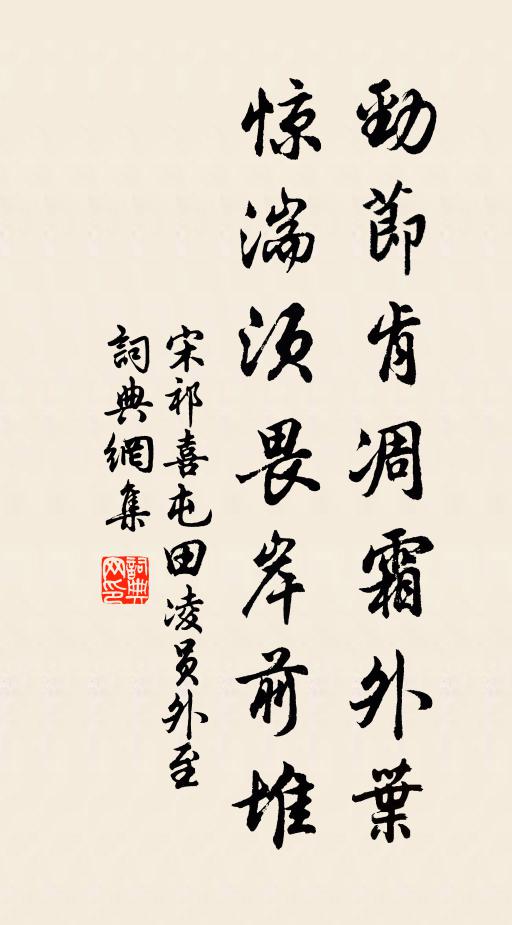 勁節肯凋霜外葉
惊湍须畏岸前堆
宋祁喜屯田凌员外至
詞典網集
詞典网印